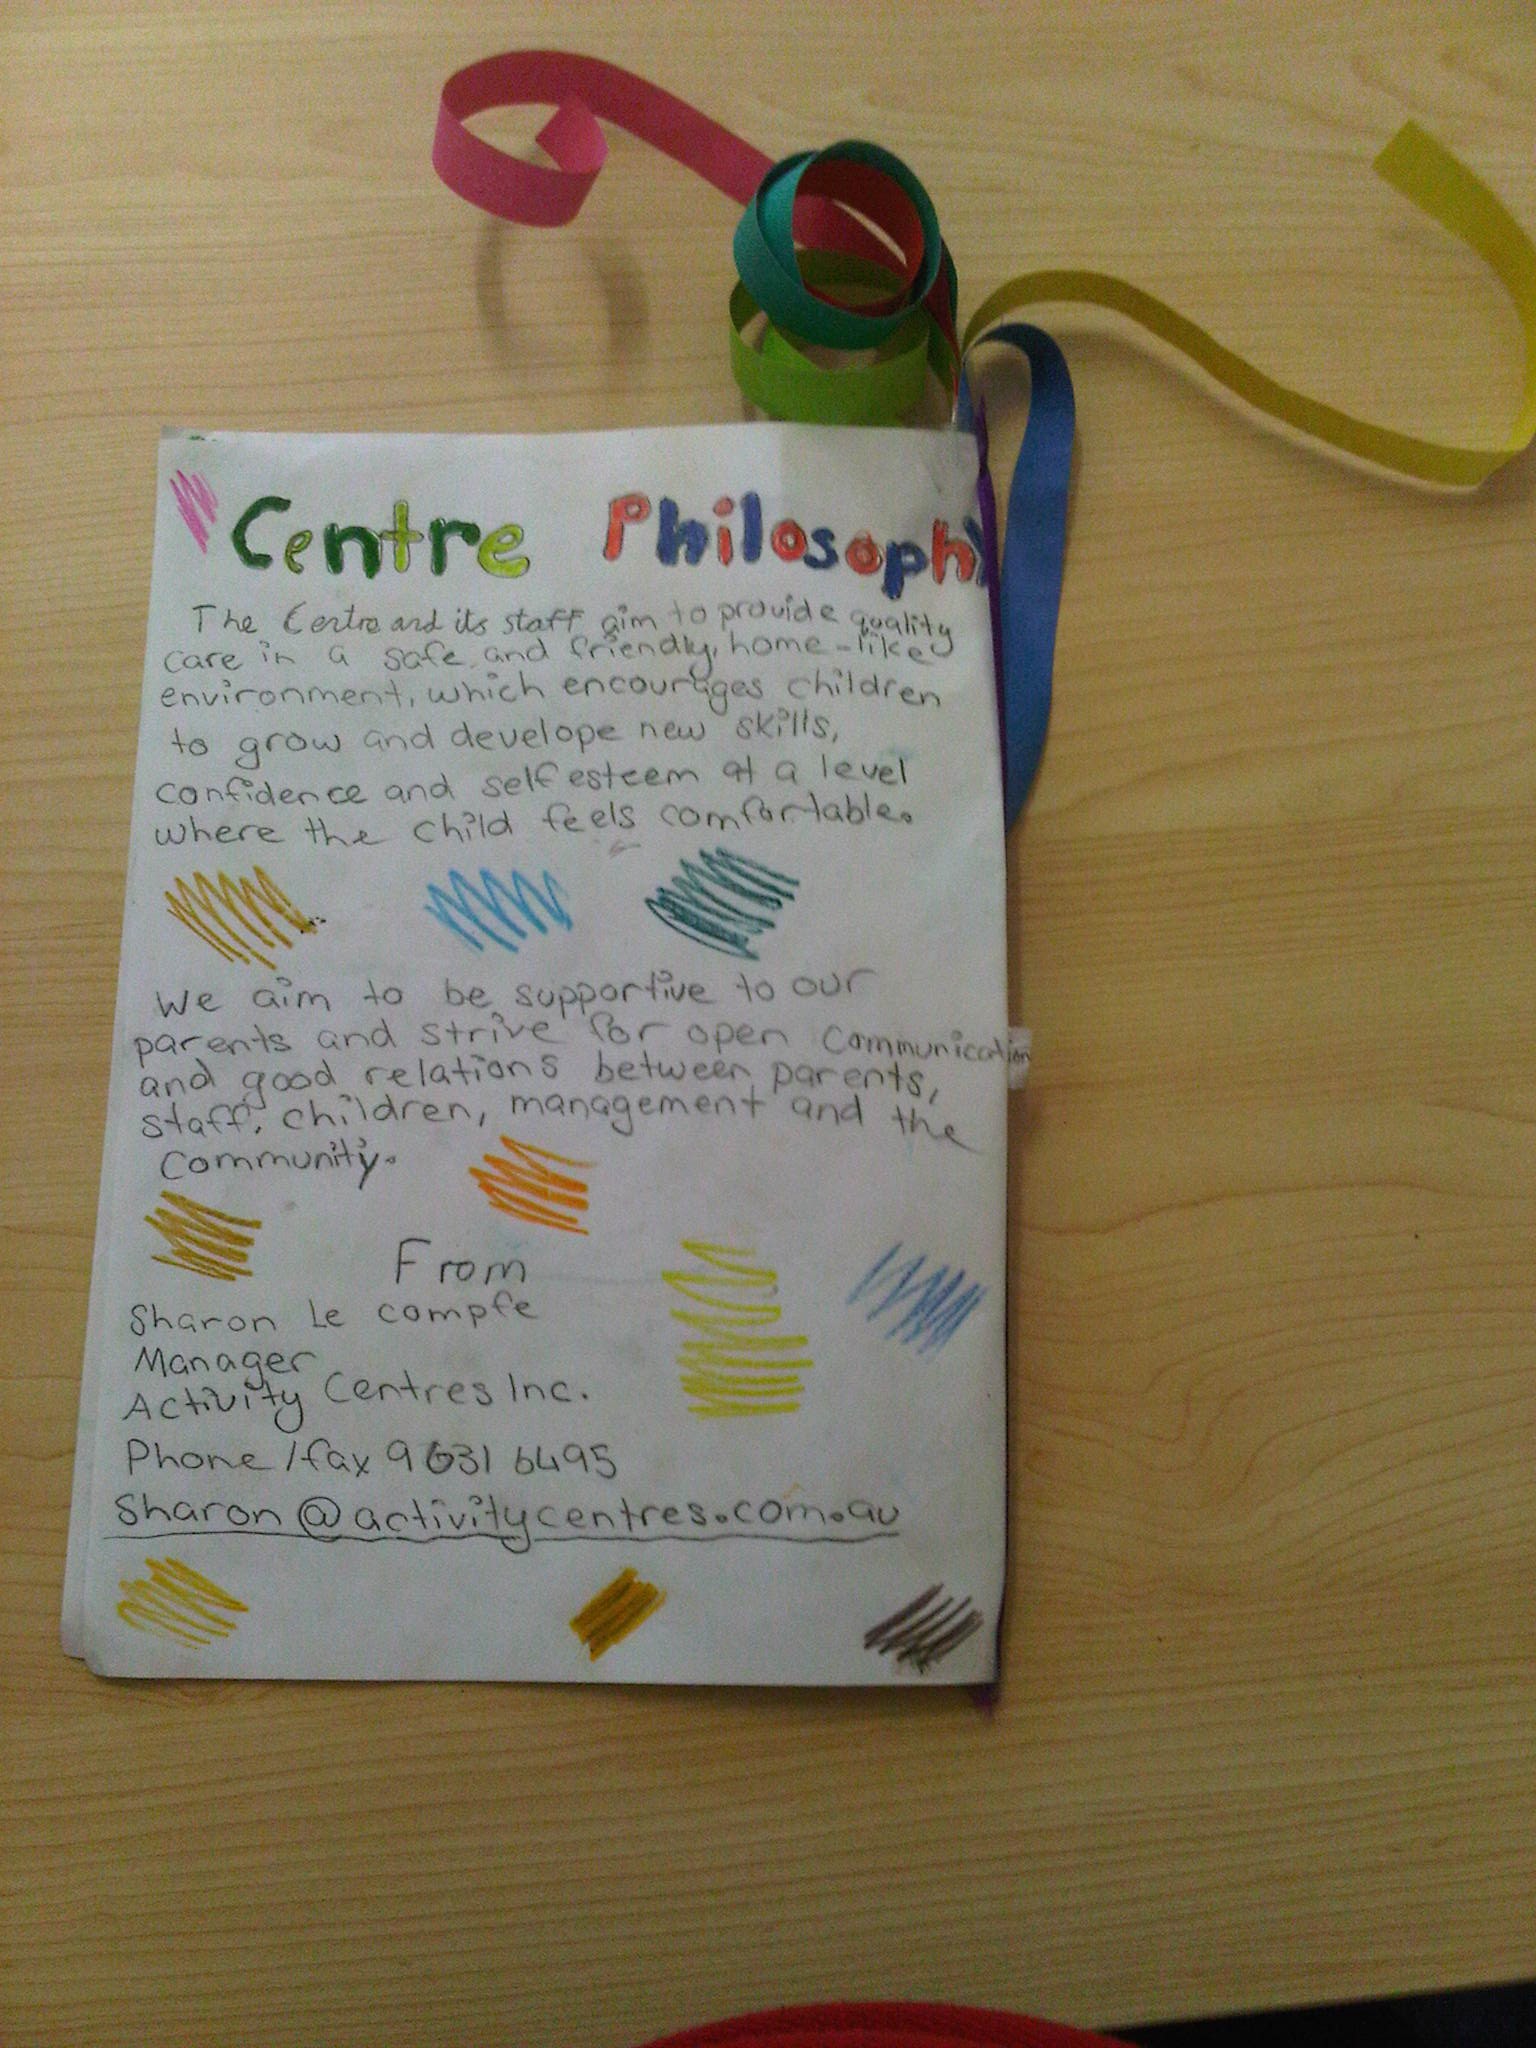 Centre Philosophy
The Centre and its staff aim to provide quality
care in a safe and friendly, home-like
environment, which encourages children
to grow and develope new skills,
confidence and self esteem at a level
where the child feels comfortable.
We aim to be supportive to our
parents and strive for open communication
and good relations between parents,
staff, children, management and the
community.
From
Sharon Le compfe
Manager
Activity Centres Inc.
Phone /fax 9631 6495
Sharon@activitycentres.com.au